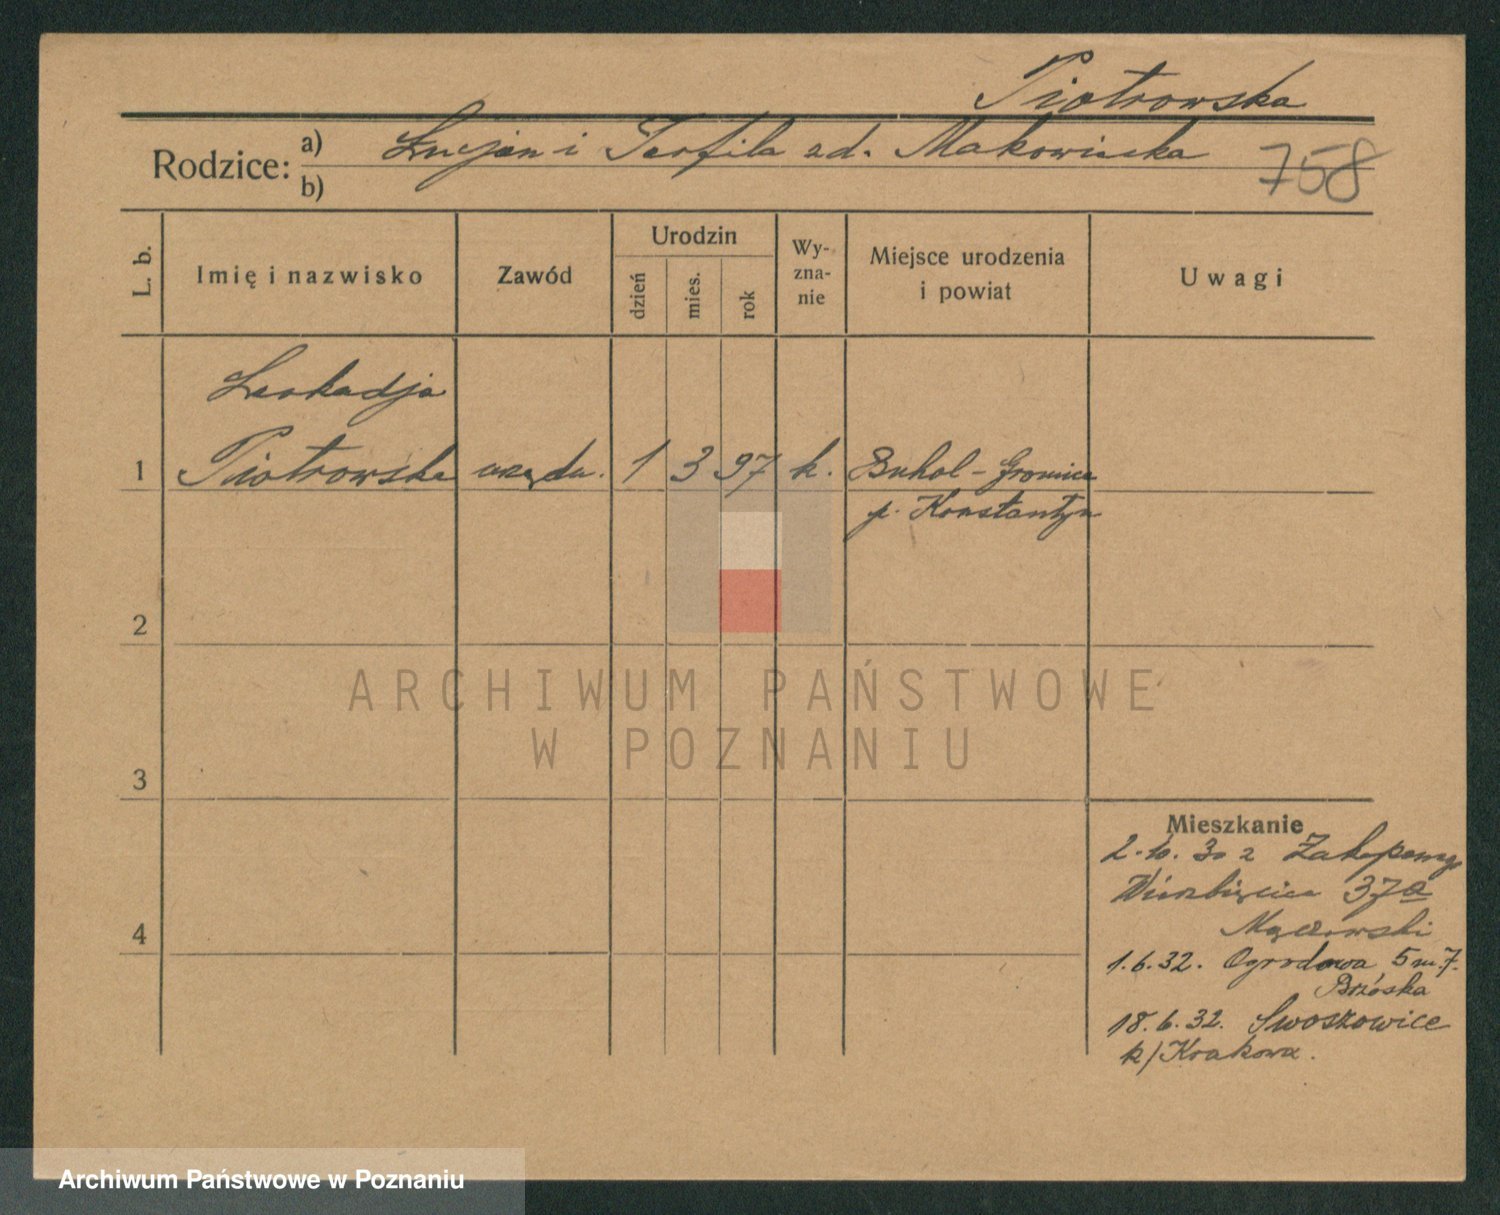 Piotrowska
Rodzice: a) Lucjan i Teofila zd. Makowiecka
b)
758
L. b.
Imię i nazwisko
Zawód
Urodzin
dzień
mies.
rok
Wy-
zna-
nie
Miejsce urodzenia
i powiat
Uwagi
Leokadja
1 Piotrowska urzędn. 1 3 97 k. Suhol-Gronica
p. Konstantyn
2
3
4
ARCHIWUM PAŃSTWOWE
W POZNANIU
Mieszkanie
2.10.30 z Zakopanego
Wierzbięcice 37a
1.6.32. Ogrodowa 5 m. 7.
Brzóska
18.6.32. Swoszowice
k/Krakowa.
Archiwum Państwowe w Poznaniu